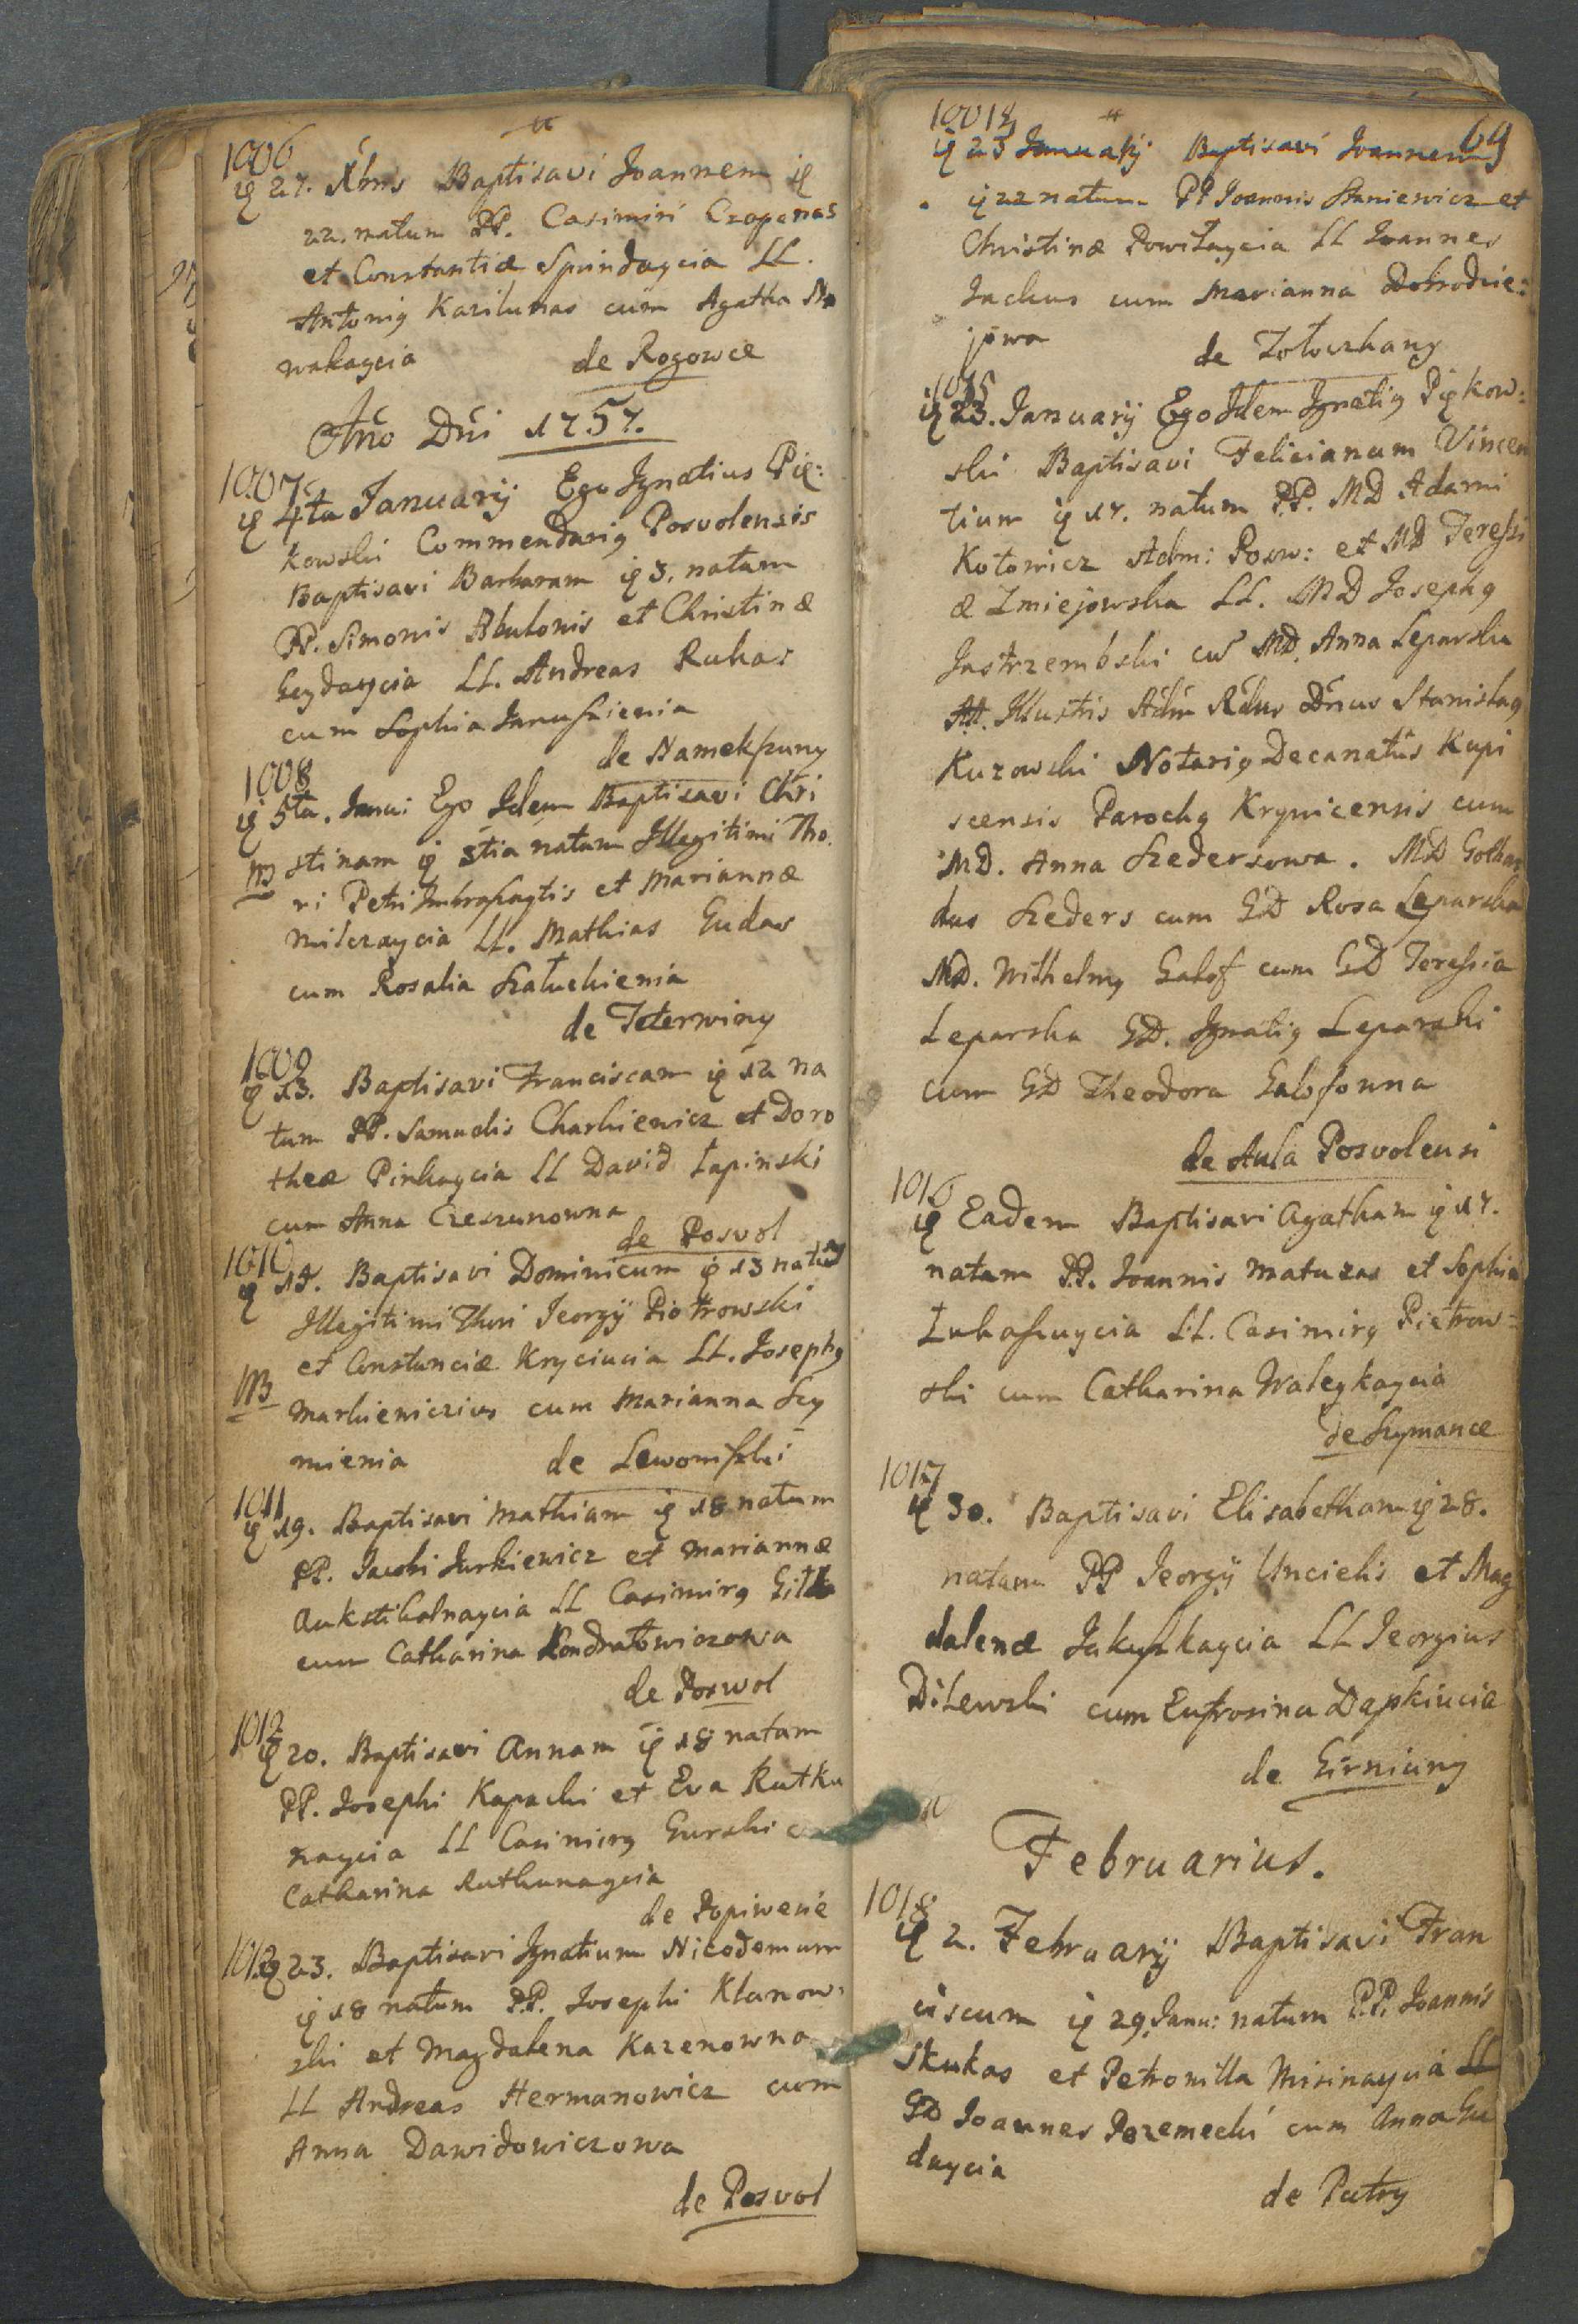 1006
ię 27. Xbris Baptisavi Joannem ię
22. natum PP. Casimiri Czapenas
et Constantiæ Spindaycia LL.
Antonig Karilunas cum Agatha No
wakaycia de Rogowce
Año Dñi 1757.
1007
ię 4ta Januarij Ego Ignatius Pię:
kowski Commendarig Posvolensis
Baptisavi Barbaram ię 3. natam
PP. Simonis Abulonis et Christinæ
Geydaycia LL. Andreas Rukas
cum Sophia Januszienia
de Namekszuny
1008
ię 5ta. Janu: Ego Idem Baptisavi Chri
NB stinam ię 3tia natam Illegitimi Tho
ri Petri Imbraszaytis et Mariannæ
Milczaycia LL. Mathias Gudas
cum Rosalia Szałuchienia
de Teterwiny
1009
ię 13. Baptisavi Franciscam ię 12 na
tum PP. Samuelis Charkiewicz et Doro
theæ Pinkaycia LL David Łapinski
cum Anna Czeszunowna
de Posvol
1010
ię 15. Baptisavi Dominicum ię 13 natum
Illegitimi Thori Jeorgij Piotrowski
et Constanciæ Kryciucia LL. Josephg
NB Markieniczius cum Marianna Szy
mienia de Lewoniszki
1011
ię 19. Baptisavi Mathiam ię 18 natum
PP. Jacobi Jurkiewicz et Mariannæ
Aukstikalnaycia LL Casimirg Gitta
cum Catharina Kondratowiczowa
de Poswol
1012
ię 20. Baptisavi Annam ię 18 natam
PP. Josephi Kapacki et Eva Rutku
naycia LL Casimirg Gurski c
Catharina Ruthunaycia
de Popiwesie
1013 ię 23. Baptisavi Ignatium Nicodemum
ię 18 natum PP. Josephi Klanow:
ski et Magdalena Kazenowna
LL Andreas Hermanowicz cum
Anna Dawidowiczowa
de Posvol
10014 69
ię 23 Januarij Baptisavi Joannem
ię 22 natum PP Joannis Staniewicz et
Christinæ Powiłaycia LL Joannes
Jackus cum Marianna Dobrodzie:
jowa de Tołoczkany
1015
ię 23. Januarij Ego Idem Ignatig Piękow:
ski Baptisavi Felicianum Vincen
tium ię 17. natum P.P. MD Adami
Kotowicz Adm: Posw: et MD Teressi
æ Zmiejowska LL. MD Josephg
Jastrzembski cū MD. Anna Leparska
AA. Illustris Adm Rdus Dnus Stanislag
Kurowski Notarig Decanatûs Kupi
scensis Parochg Krynicensis cum
MD. Anna Szedersowa. MD Gothar
dus Szeders cum GD Rosa Leparska
MD. Wilhelmg Galof cum GD Teressia
Leparska GD. Ignatig Leparski
cum GD Theodora Galofonna
de Aula Posvolensi
1016
ię Eadem Baptisavi Agatham ię 17.
natam P.P. Joannis Matuzas et Sophia
Łukaszuycia LL. Casimirg Pietrow=
ski cum Catharina Waleykaycia
de Szymance
1017
ię 30. Baptisavi Elisabetham ię 28.
natam PP Jeorgij Uncielis et Mag
dalenæ Jakuszkaycia LL Jeorgius
Dilewski cum Eufrosina Dapkiucia
de Girniuny
Februarius.
1018
ię 2. Februarij Baptisavi Fran
ciscum ię 29. Janu: natum P.P. Joannis
Skukas et Petronilla Misinaycia LL
GD Joannes Pozemecki cum Anna Gu
daycia
de Putry